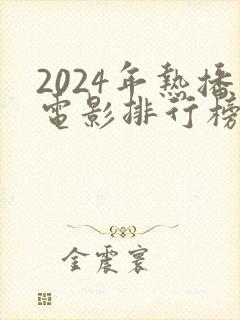 2024年熱播
電影排行榜
金震寰